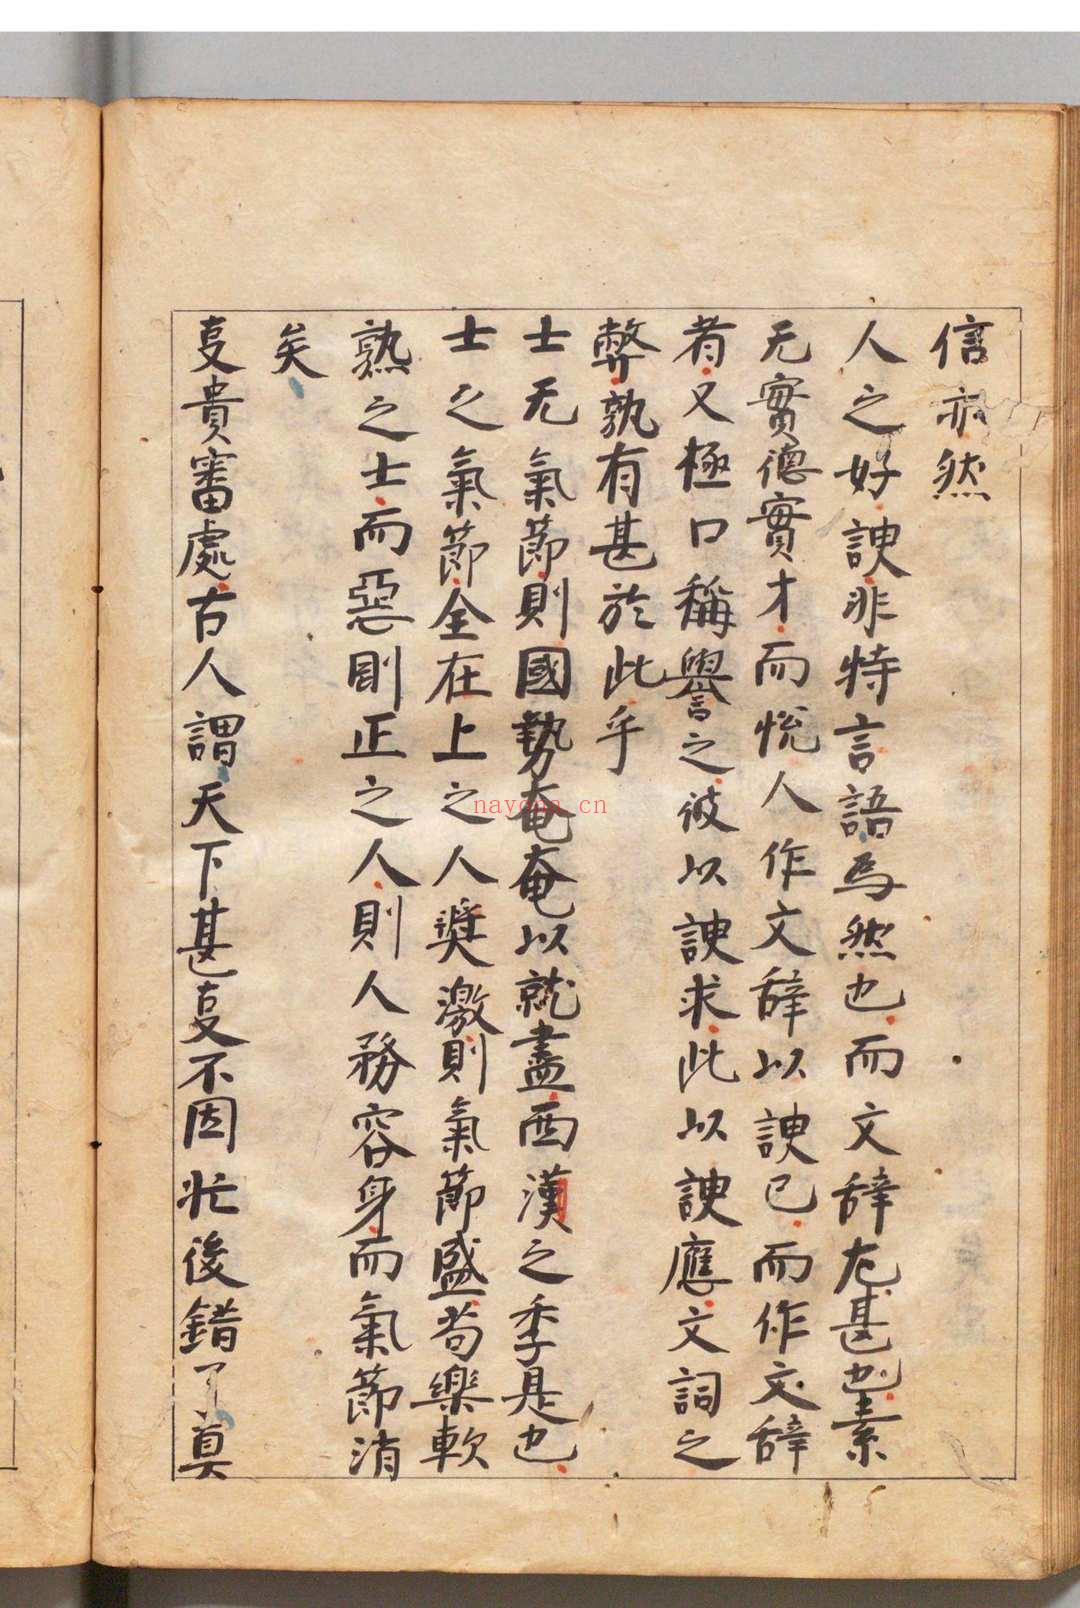 信亦然
人之好諛非特言語為然也而文辞尤甚也素
无實德實才而悅人作文辞以諛已而作文辞
者又極口稱譽之彼以諛求此以諛應文詞之
弊孰有甚於此乎
士无氣節則國勢奄奄以就盡西漢之季是也
士之氣節全在上之人奬激則氣節盛苟樂軟
熟之士而惡剛正之人則人務容身而氣節消
矣
叓貴審處古人謂天下甚叓不因忙後錯了真
nayona.cn